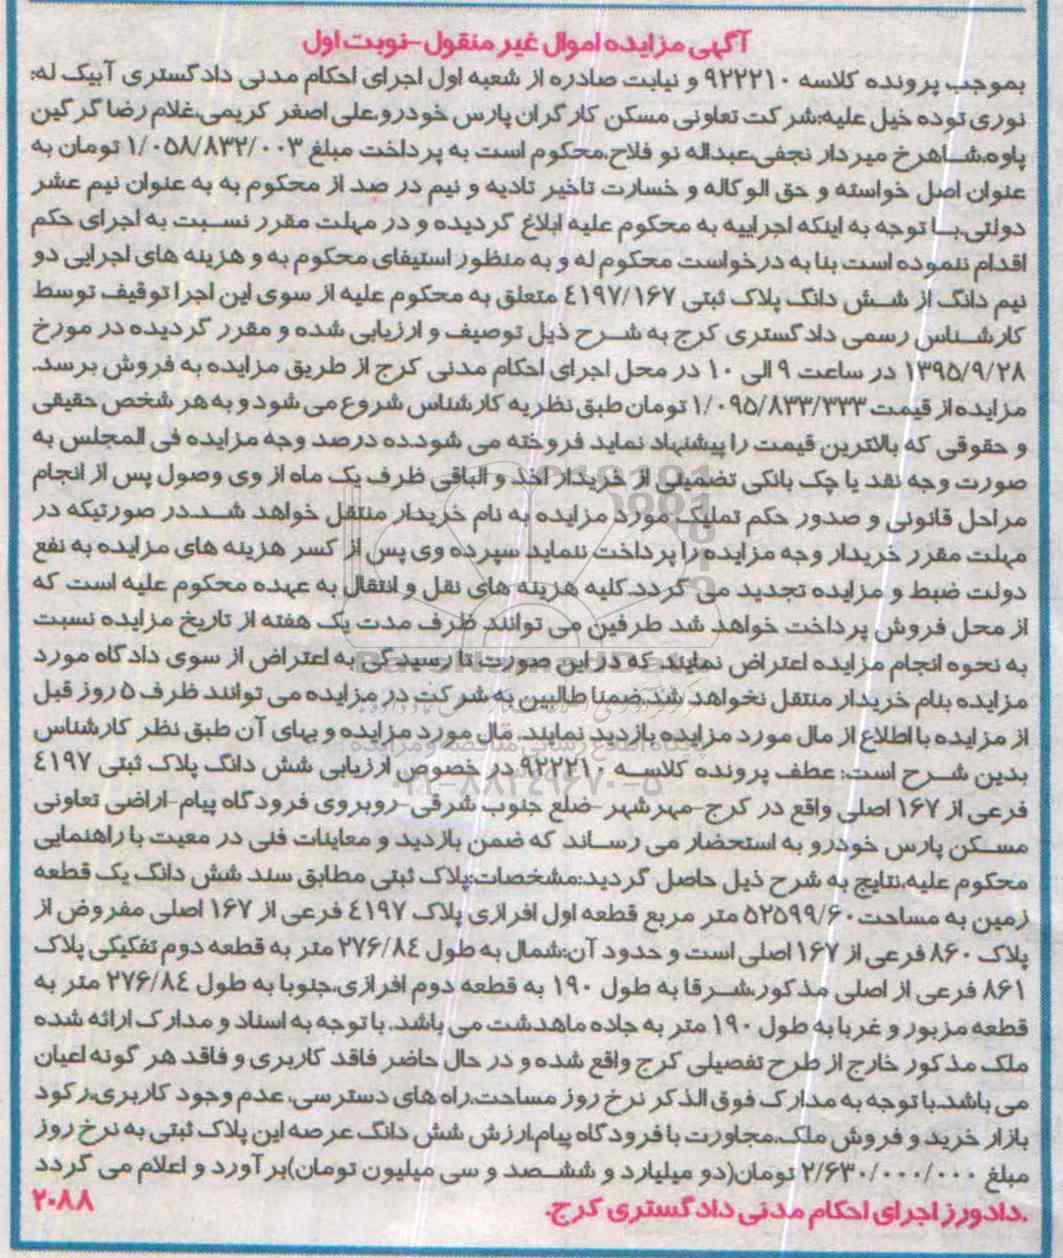 آگهی مزایده اموال غیر منقول-نوبت اول
بموجب پرونده کلاسه ۹۲۲۲۱۰ و نیابت صادره از شعبه اول اجرای احکام مدنی دادگستری آبیک له:
نوری توده خیل علیه:شرکت تعاونی مسکن کارگران پارس خودرو،علی اصغر کریمی،غلام رضا گرگین
پاوه،شاهرخ میردار نجفی،عبداله نو فلاح،محکوم است به پرداخت مبلغ ۱/۰۵۸/۸۳۲/۰۰۳ تومان به
عنوان اصل خواسته و حق الوکاله و خسارت تاخیر تادیه و نیم در صد از محکوم به به عنوان نیم عشر
دولتی،با توجه به اینکه اجراییه به محکوم علیه ابلاغ گردیده و در مهلت مقرر نسبت به اجرای حکم
اقدام ننموده است بنا به درخواست محکوم له و به منظور استیفای محکوم به و هزینه های اجرایی دو
نیم دانگ از شش دانگ پلاک ثبتی ٤۱۹۷/۱۶۷ متعلق به محکوم علیه از سوی این اجرا توقیف توسط
کارشناس رسمی دادگستری کرج به شرح ذیل توصیف و ارزیابی شده و مقرر گردیده در مورخ
۱۳۹۵/۹/۲۸ در ساعت ۹ الی ۱۰ در محل اجرای احکام مدنی کرج از طریق مزایده به فروش برسد.
مزایده از قیمت ۱/۰۹۵/۸۳۳/۳۳۳ تومان طبق نظریه کارشناس شروع می شود و به هر شخص حقیقی
و حقوقی که بالاترین قیمت را پیشنهاد نماید فروخته می شود.ده درصد وجه مزایده فی المجلس به
صورت وجه نقد یا چک بانکی تضمینی از خریدار اخذ و الباقی ظرف یک ماه از وی وصول پس از انجام
مراحل قانونی و صدور حکم تملیک مورد مزایده به نام خریدار منتقل خواهد شد.در صورتیکه در
مهلت مقرر خریدار وجه مزایده را پرداخت ننماید سپرده وی پس از کسر هزینه های مزایده به نفع
دولت ضبط و مزایده تجدید می گردد.کلیه هزینه های نقل و انتقال به عهده محکوم علیه است که
از محل فروش پرداخت خواهد شد طرفین می توانند ظرف مدت یک هفته از تاریخ مزایده نسبت
به نحوه انجام مزایده اعتراض نمایند که در این صورت تا رسیدگی به اعتراض از سوی دادگاه مورد
مزایده بنام خریدار منتقل نخواهد شد.ضمنا طالبین به شرکت در مزایده می توانند ظرف ۵ روز قبل
از مزایده با اطلاع از مال مورد مزایده بازدید نمایند. مال مورد مزایده و بهای آن طبق نظر کارشناس
بدین شرح است: عطف پرونده کلاسه ۹۲۲۲۱۰ در خصوص ارزیابی شش دانگ پلاک ثبتی ٤۱۹۷
فرعی از ۱۶۷ اصلی واقع در کرج-مهرشهر-ضلع جنوب شرقی-روبروی فرودگاه پیام-اراضی تعاونی
مسکن پارس خودرو به استحضار می رساند که ضمن بازدید و معاینات فنی در معیت با راهنمایی
محکوم علیه،نتایج به شرح ذیل حاصل گردید:مشخصات:پلاک ثبتی مطابق سند شش دانگ یک قطعه
زمین به مساحت ۵۲۵۹۹/۶۰ متر مربع قطعه اول افرازی پلاک ٤۱۹۷ فرعی از ۱۶۷ اصلی مفروض از
پلاک ۸۶۰ فرعی از ۱۶۷ اصلی است و حدود آن:شمال به طول ۲۷۶/۸٤ متر به قطعه دوم تفکیکی پلاک
۸۶۱ فرعی از اصلی مذکور،شرقا به طول ۱۹۰ به قطعه دوم افرازی،جنوبا به طول ۲۷۶/۸٤ متر به
قطعه مزبور و غربا به طول ۱۹۰ متر به جاده ماهدشت می باشد. با توجه به اسناد و مدارک ارائه شده
ملک مذکور خارج از طرح تفصیلی کرج واقع شده و در حال حاضر فاقد کاربری و فاقد هر گونه اعیان
می باشد.با توجه به مدارک فوق الذکر نرخ روز مساحت،راه های دسترسی، عدم وجود کاربری،رکود
بازار خرید و فروش ملک،مجاورت با فرودگاه پیام،ارزش شش دانگ عرصه این پلاک ثبتی به نرخ روز
مبلغ ۲/۶۳۰/۰۰۰/۰۰۰ تومان(دو میلیارد و ششصد و سی میلیون تومان)برآورد و اعلام می گردد
.دادورز اجرای احکام مدنی دادگستری کرج.
۲۰۸۸